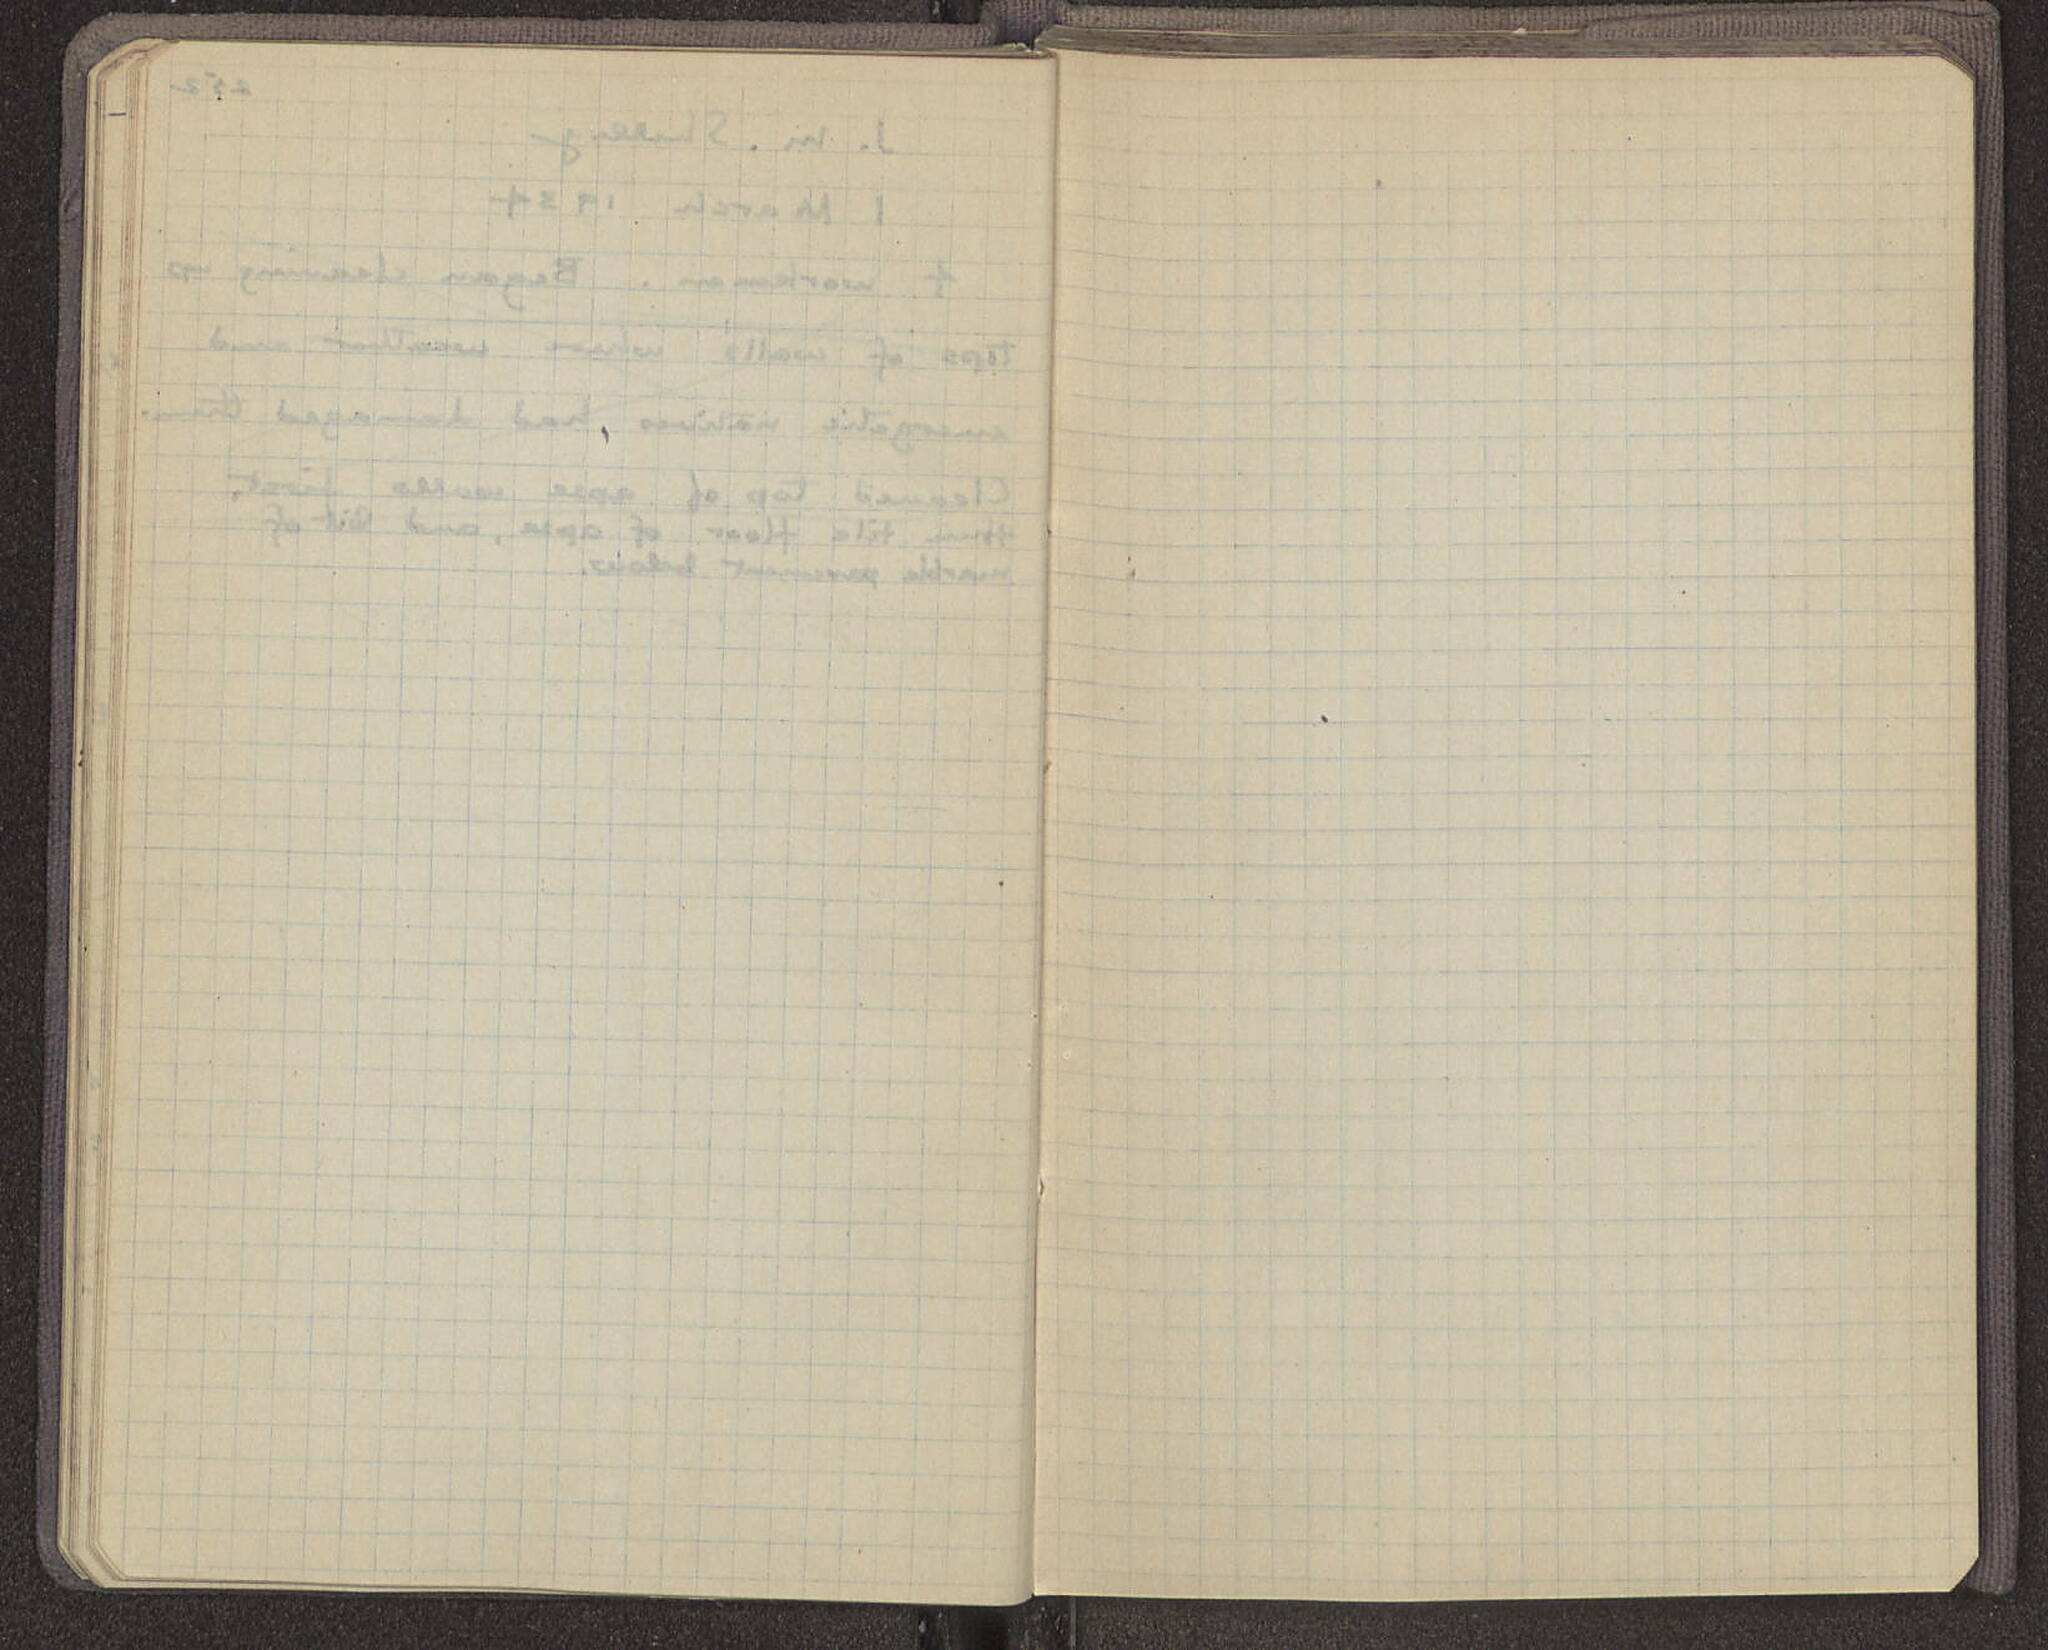 252
J. M. Shelley
1 March 1934
4 workmen. Began cleaning up
tops of walls where weather and
energetic natives had damaged them.
Cleaned top of apse walls first,
then tile floor of apse, and bit of
marble pavement below.